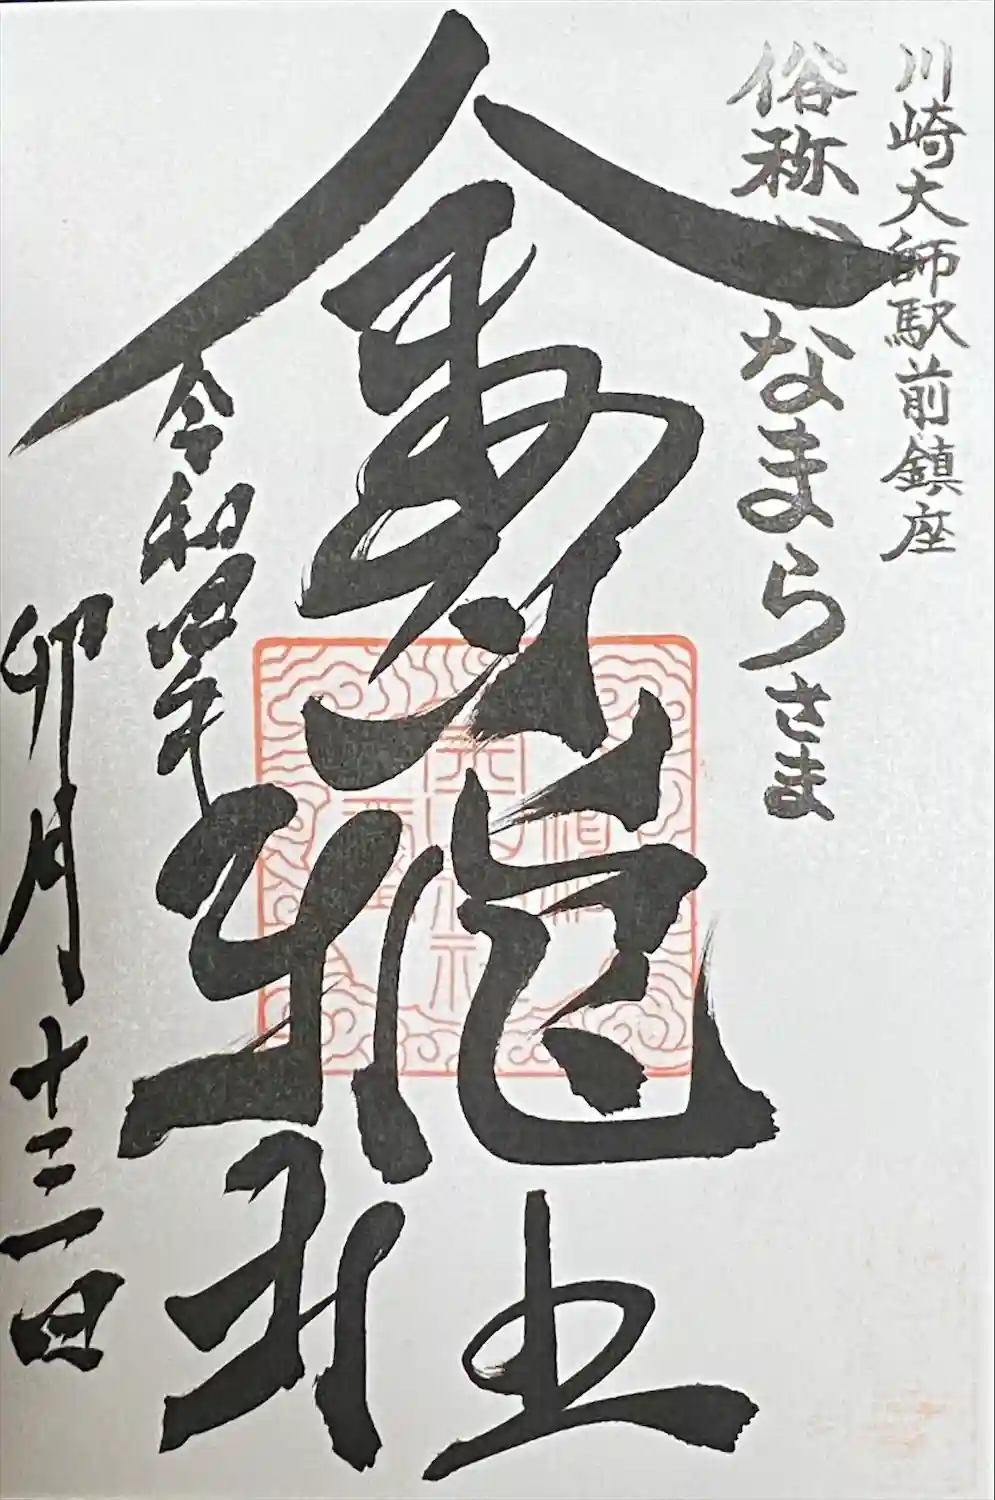 川崎大師駅前鎮座
俗称かなまらさま
金山神社
令和四年
卯月十三日